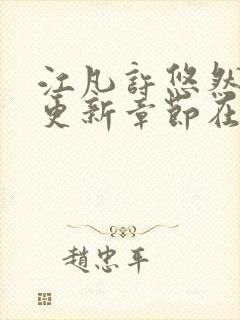 江凡許悠然
更新章節在
趙忠平